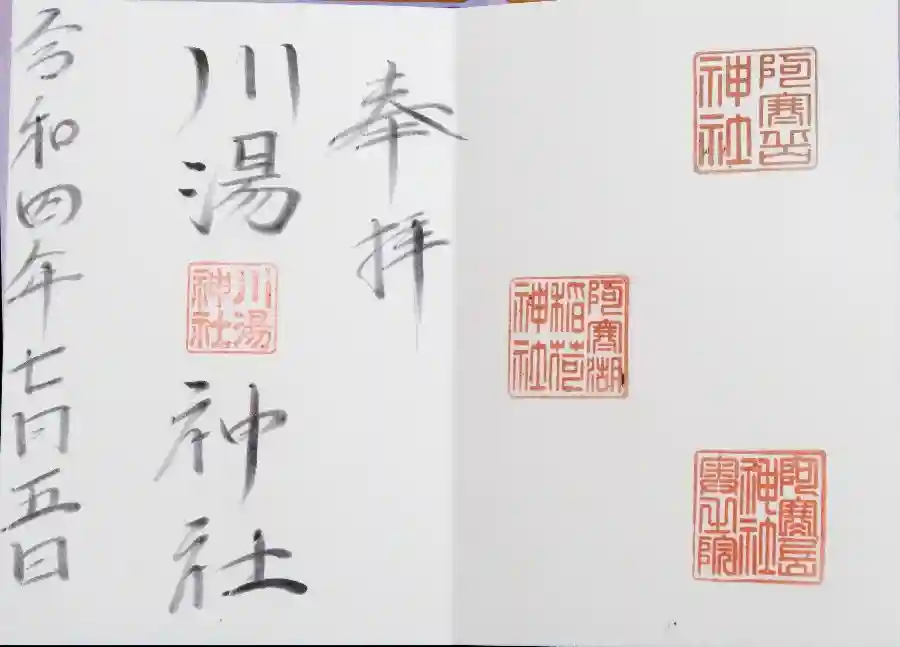 阿寒岳
神社
阿寒湖
稲荷
神社
阿寒岳
神社
之院
奉拝
川湯神社
川湯
神社
令和四年七月五日